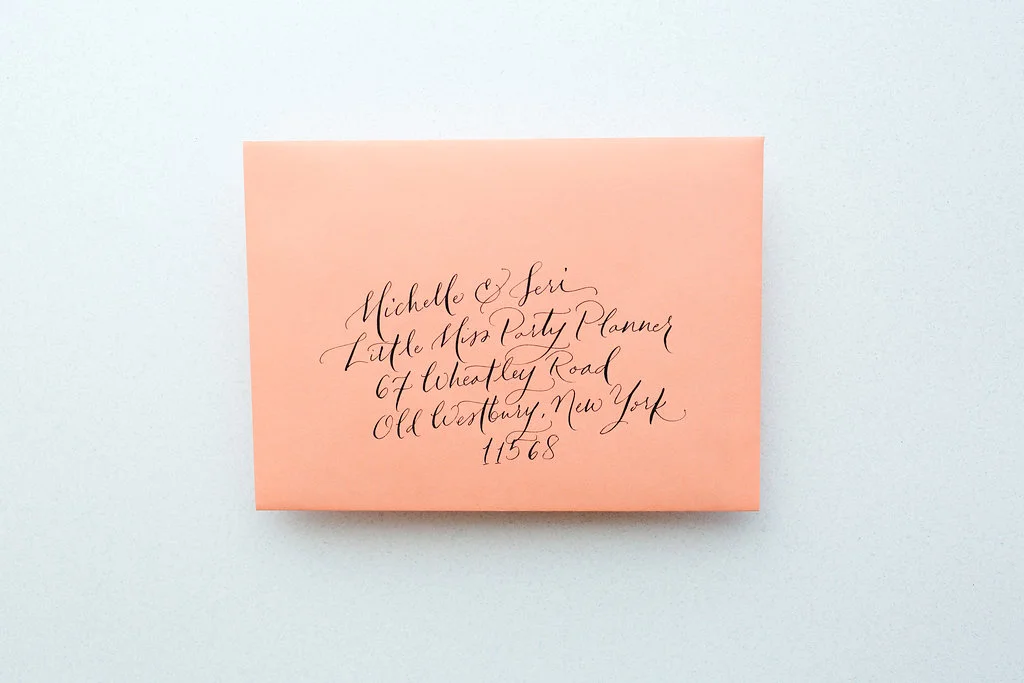 Michelle & Seri
Little Miss Party Planner
67 Wheatley Road
Old Westbury, New York
11568